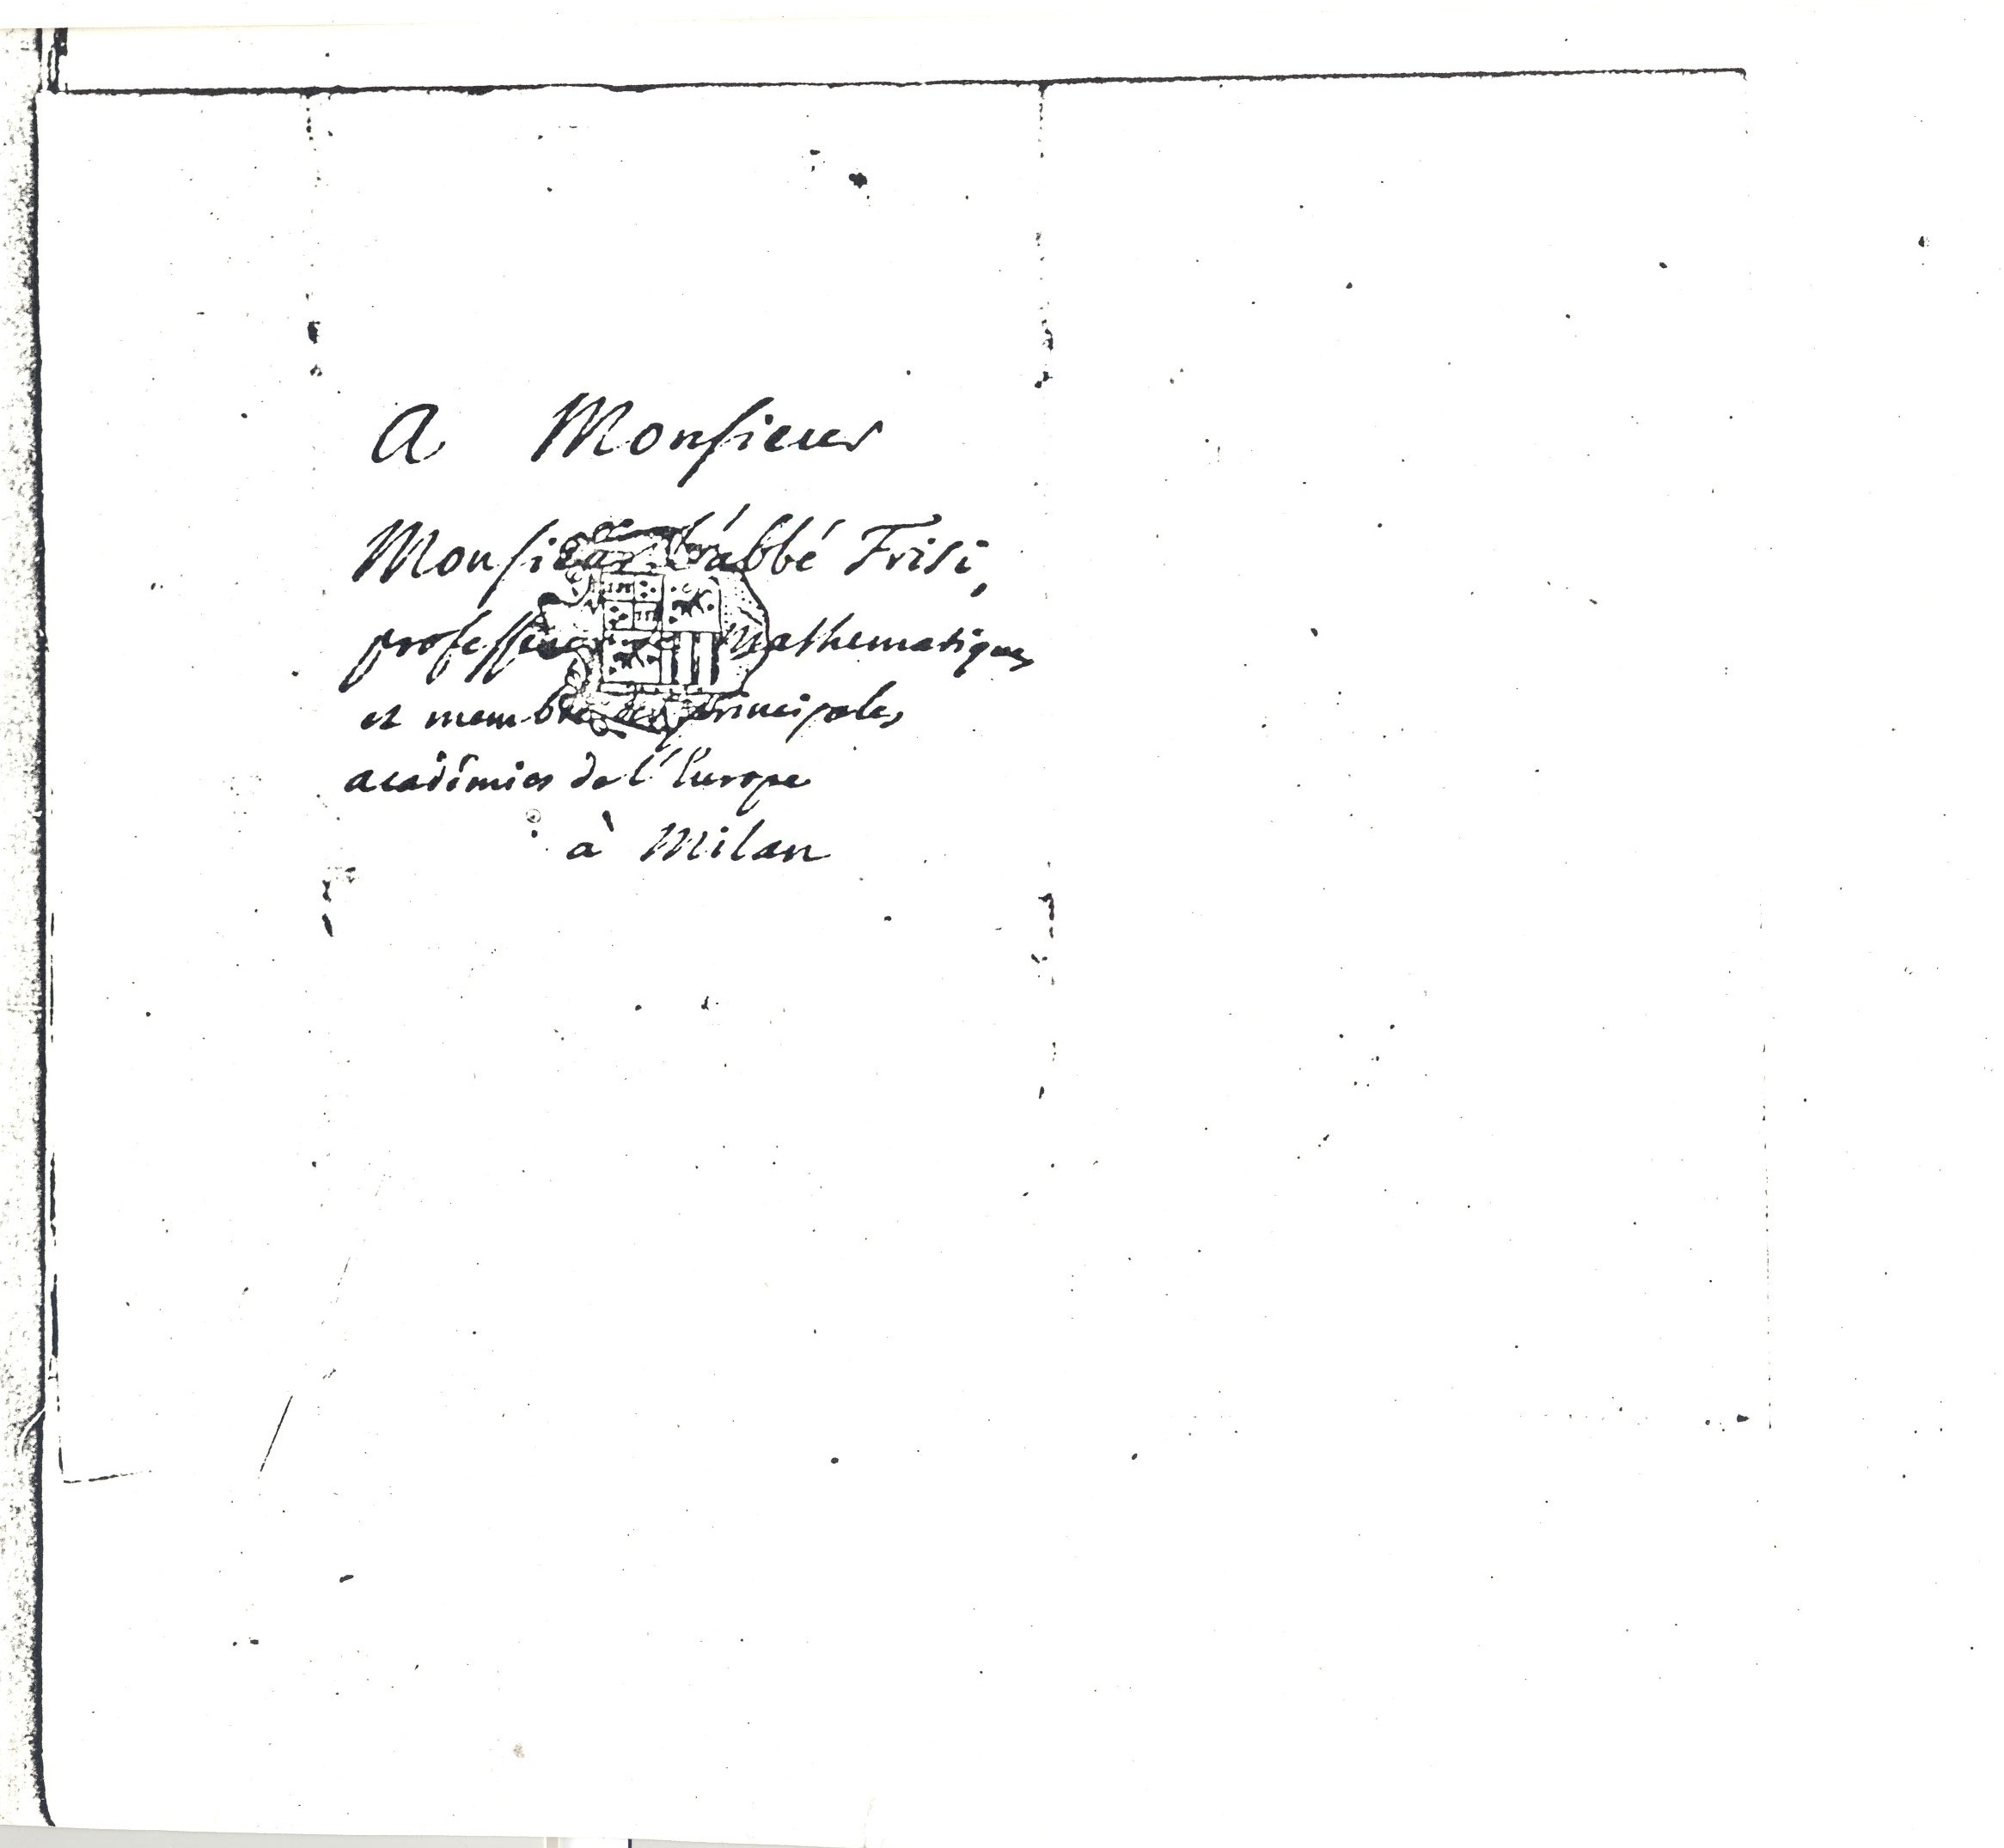 A Monsieur
Monsieur l'abbé Frisi,
professeur Mathematiques
et membre des principales
académies de l'Europe
à Milan